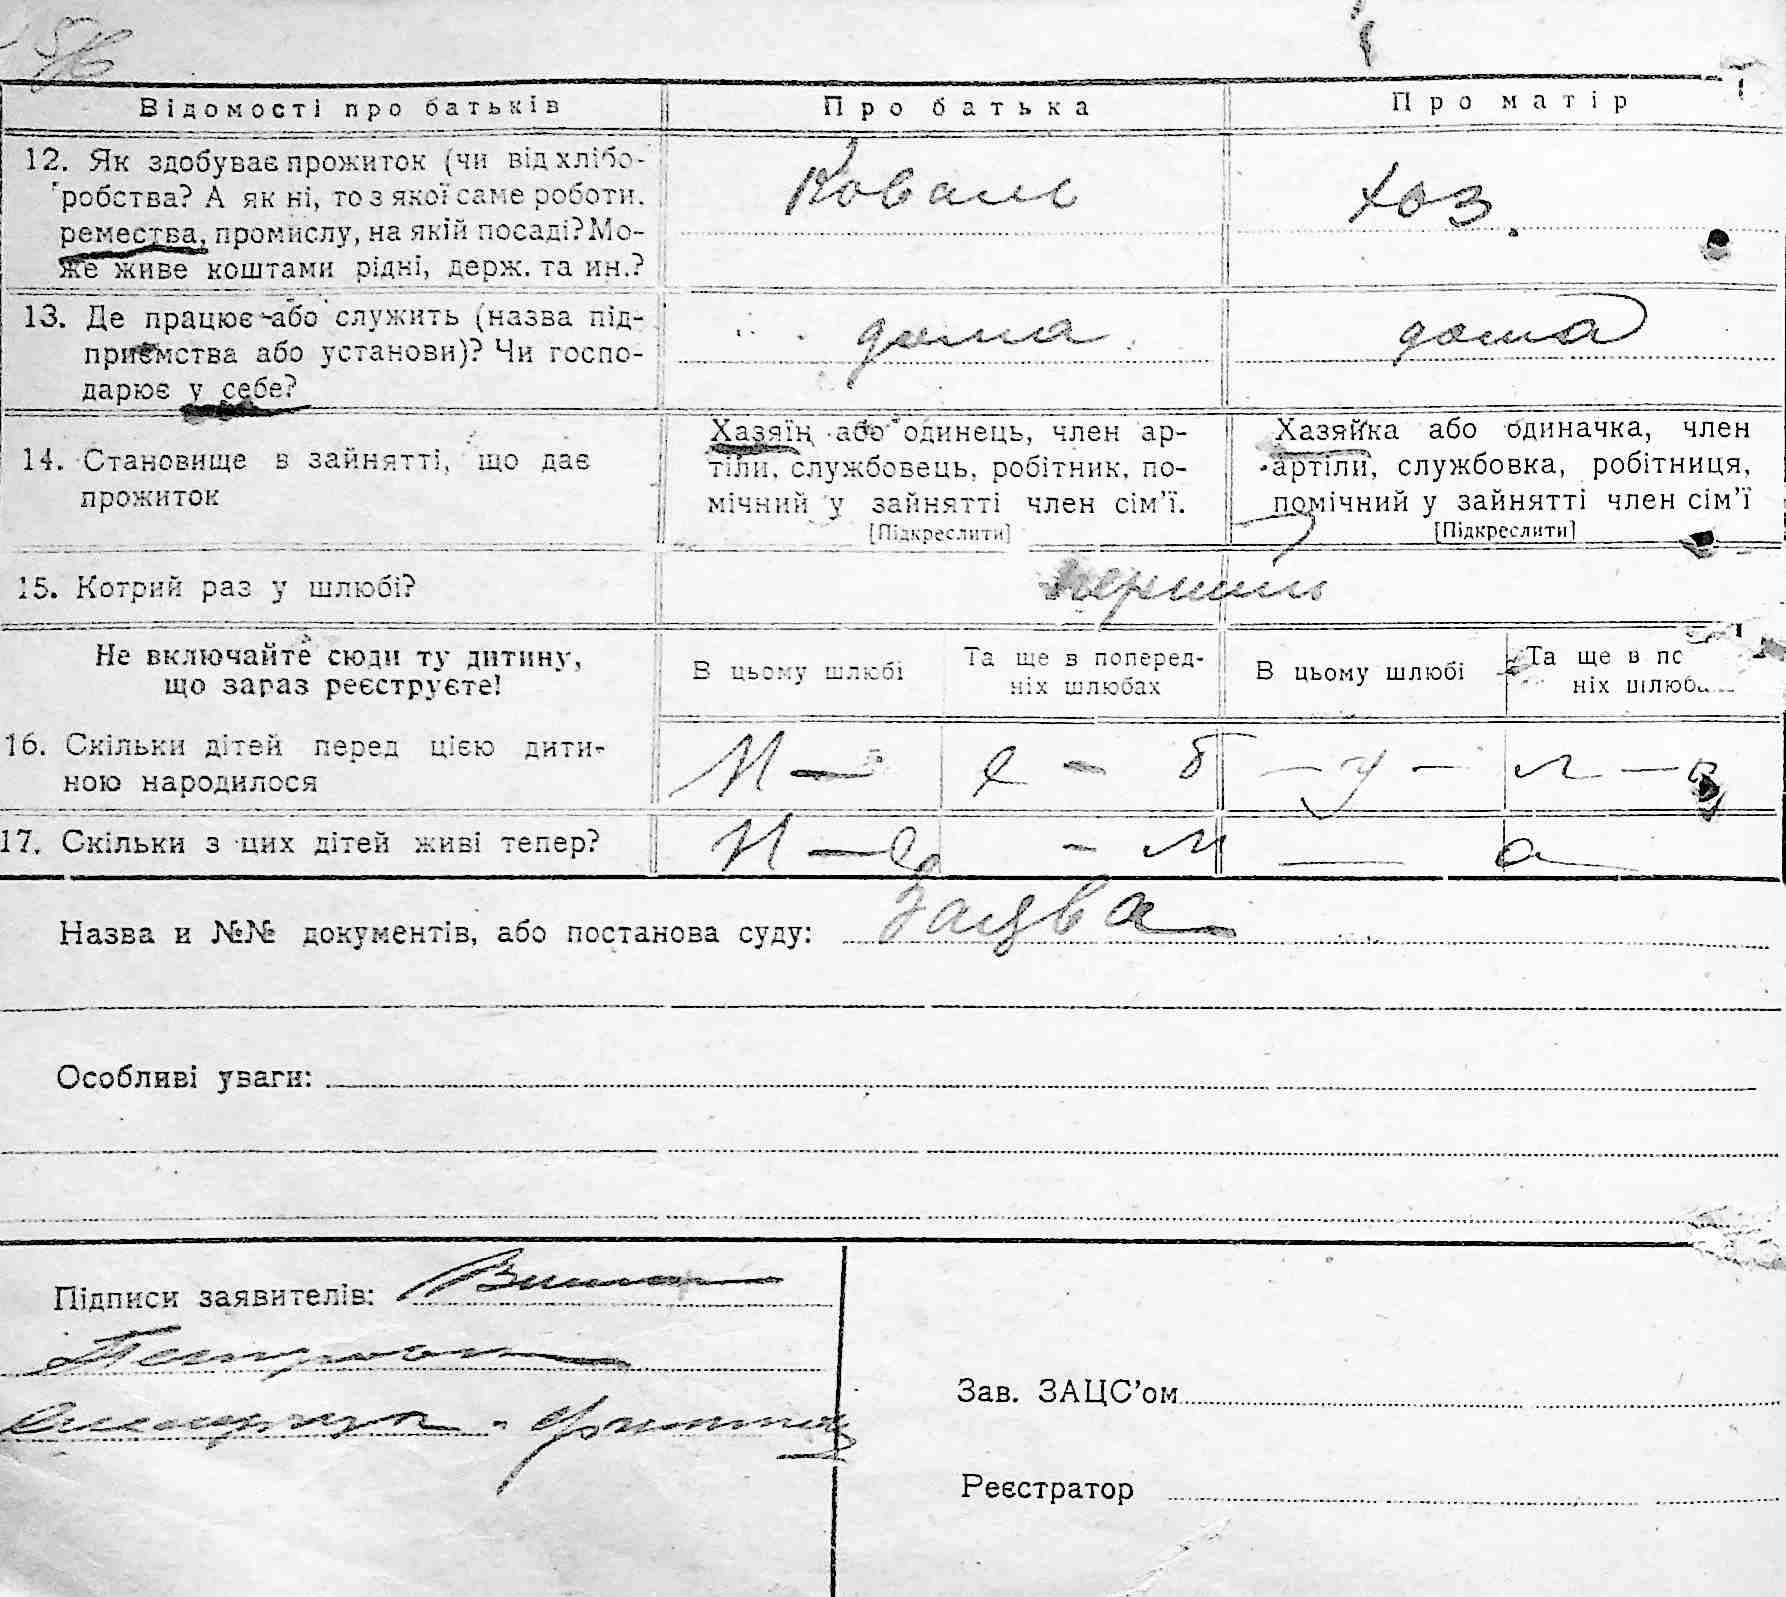 Відомості про батьків
Про батька
Про матір
12. Як здобуває прожиток (чи від хлібо-
робства? А як ні, то з якої саме роботи,
ремества, промислу, на якій посаді? Мо-
же живе коштами рідні, держ. та ин.?
Коваль
хоз.
13. Де працює або служить (назва під-
приємства або установи)? Чи госпо-
дарює у себе?
дома
дома
14. Становище в зайнятті, що дає
прожиток
Хазяїн або одинець, член ар-
тіли, службовець, робітник, по-
мічний у зайнятті член сім’ї.
[Підкреслити]
Хазяйка або одиначка, член
артіли, службовка, робітниця,
помічний у зайнятті член сім’ї
[Підкреслити]
15. Котрий раз у шлюбі?
перший
Не включайте сюди ту дитину,
що зараз реєструєте!
В цьому шлюбі
Та ще в поперед-
ніх шлюбах
В цьому шлюбі
Та ще в по
ніх шлюб
16. Скільки дітей перед цією дити-
ною народилося
Н — е — б — у — л —
17. Скільки з цих дітей живі тепер?
Н — е — м — а
Назва и №№ документів, або постанова суду:
Заява
Особливі уваги:
Підписи заявителів:
Зав. ЗАЦС’ом
Реєстратор